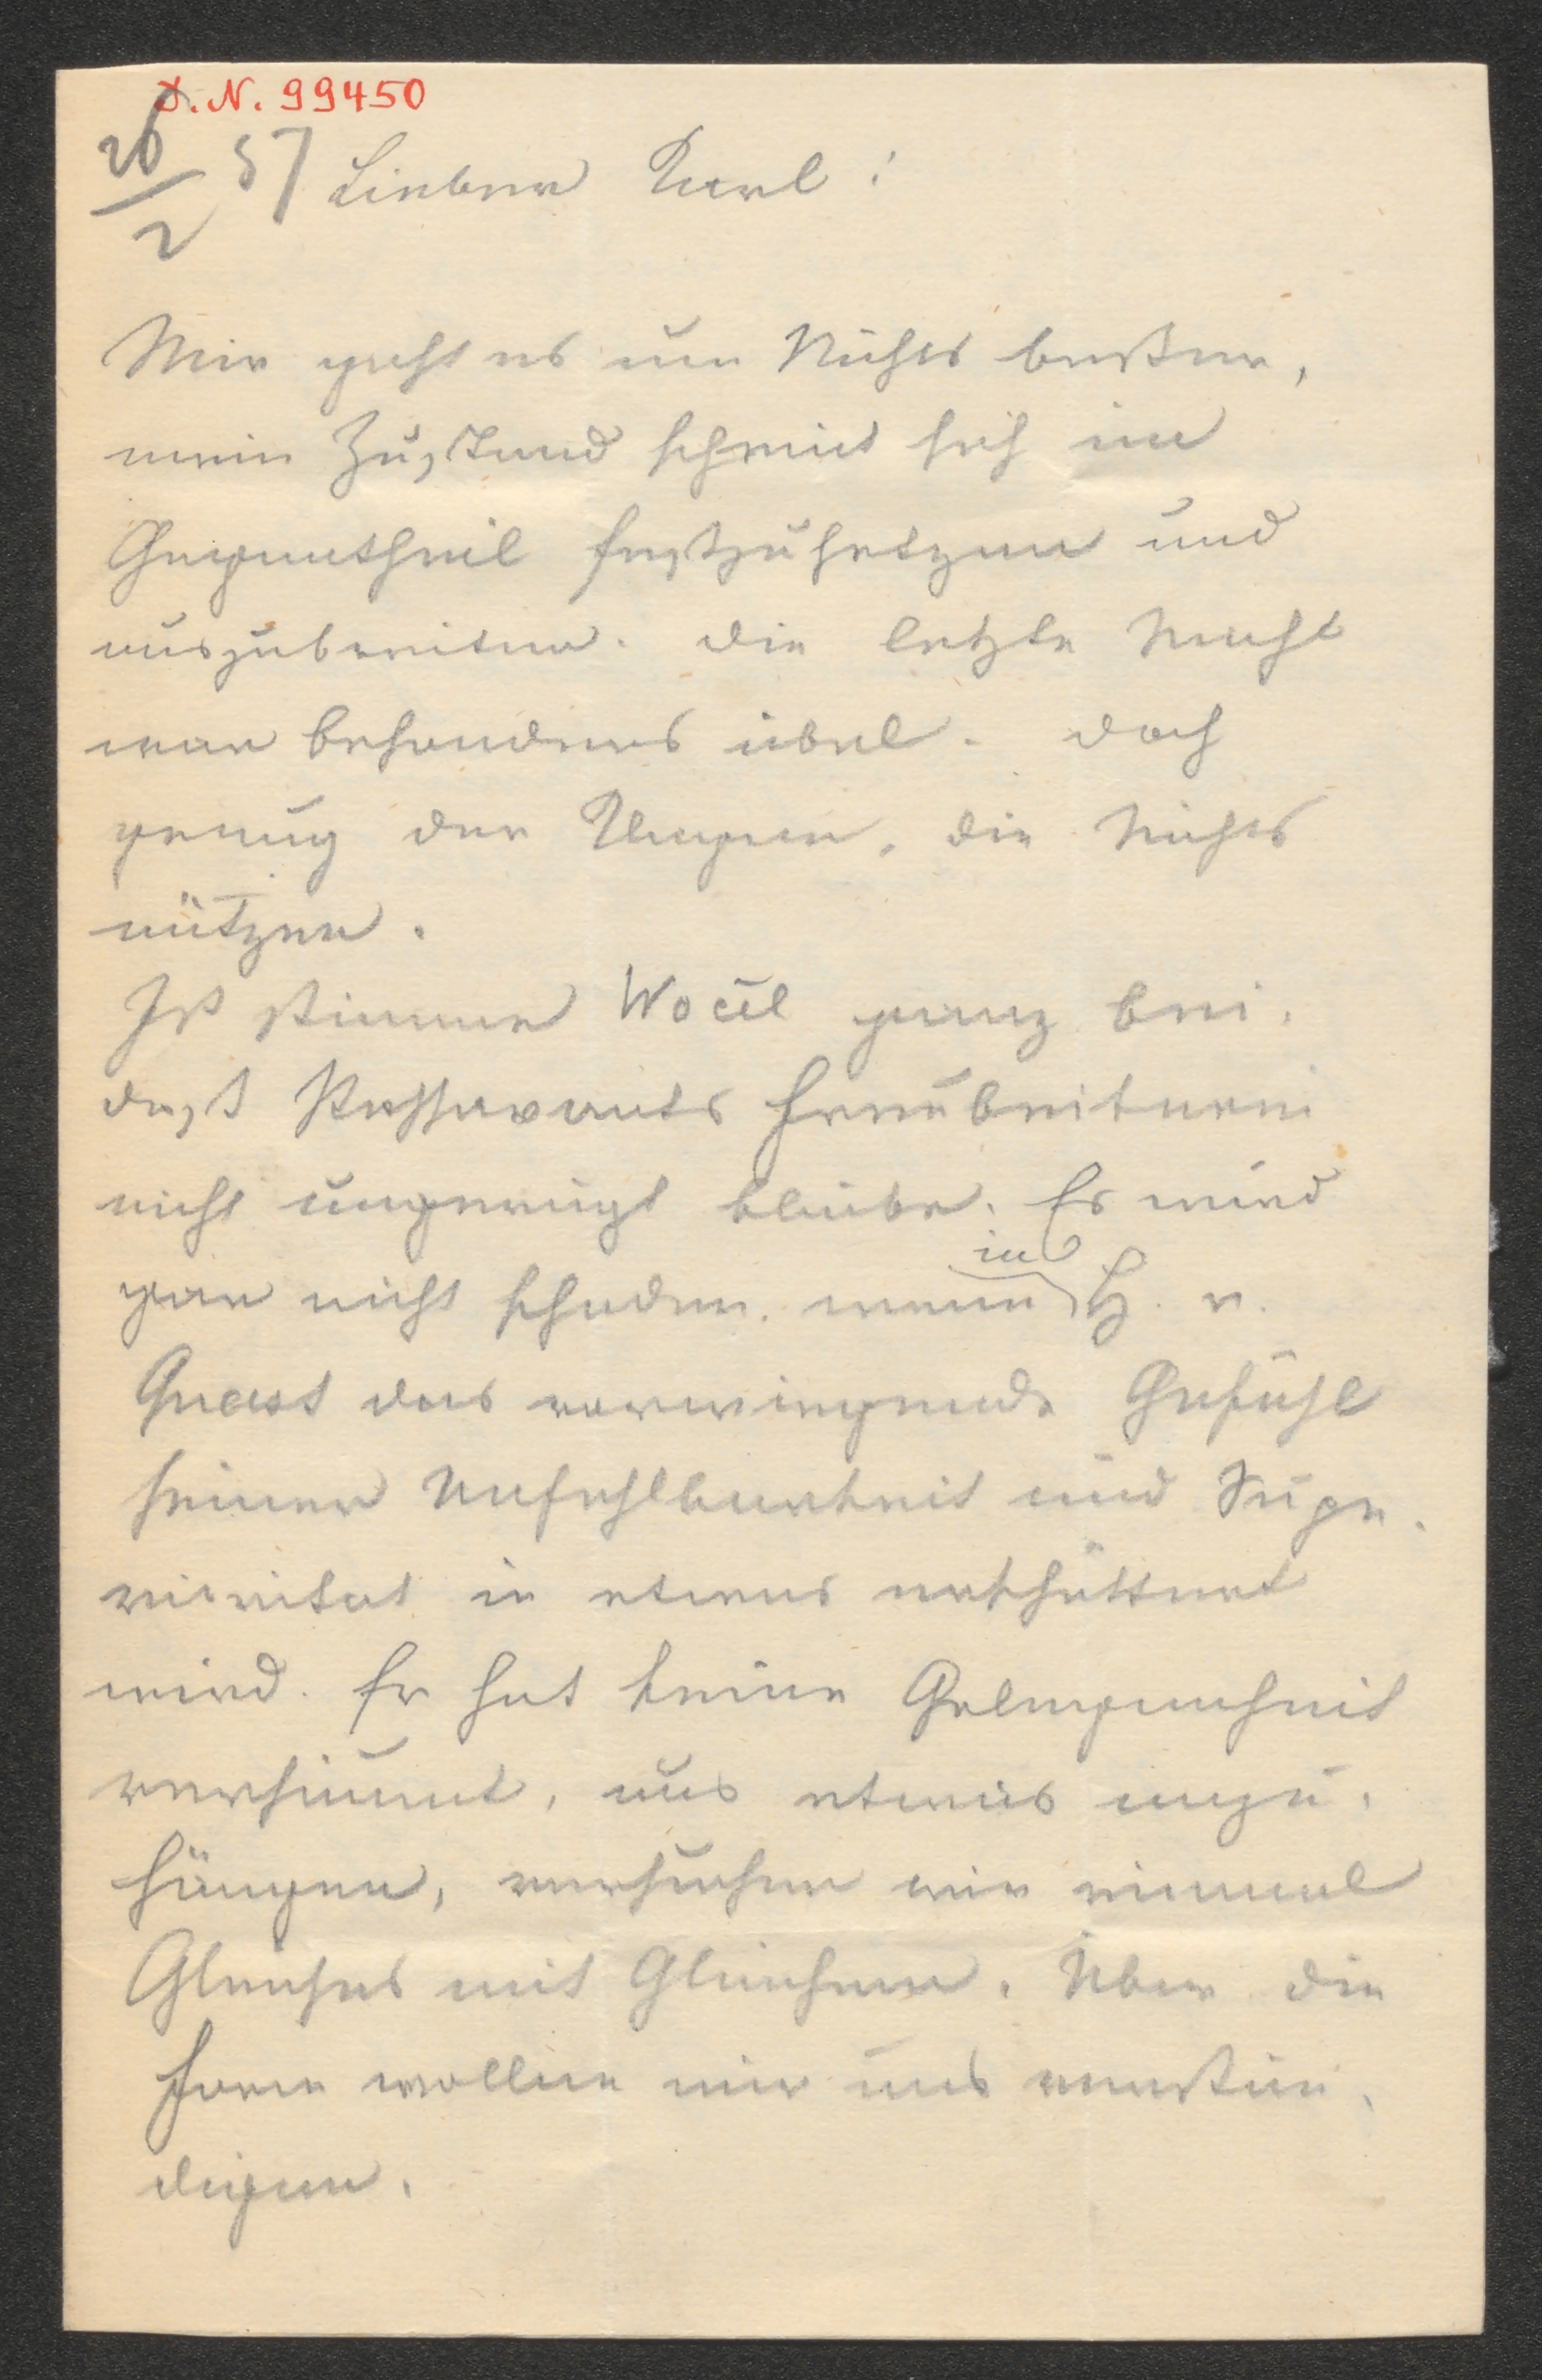 J. N. 99450
26/2 57 Lieber Karl!
Mir geht es um Nichts beßer,
mein Zustand scheint sich im
Gegentheil festzusetzen und
auszubreiten. Die letzte Nacht
war besonders übel. Doch
genug der Klagen, die Nichts
nützen.
Ich stimme Wocel ganz bei,
daß Passavants
nicht ungerügt bleibe. Es wird
gar nicht schaden, wenn in H. v.
Quast das vorwiegende Gefühl
seiner Unfehlbarkeit und Supe-
riorität in etwas erschüttert
wird. Er hat keine Gelegenheit
versäumt, uns etwas anzu-
hängen, versuchen wir einmal
Gleiches mit Gleichem. Über die
Form wollen wir uns verstän-
digen.